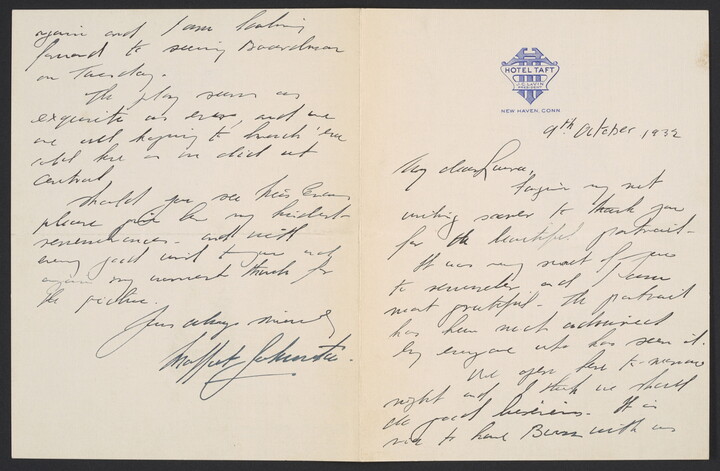 HOTEL TAFT
NEW HAVEN, CONN
9th October 1932
My dear Laura,
Forgive my not
writing sooner to thank you
for the beautiful portrait -
It was very sweet of you
to remember and I am
most grateful - The portrait
has been much admired
by everyone who has seen it.
We open here to-morrow
night and I think we should
do good business. It is
nice to have Burr with us
again and I am looking
forward to seeing Boardman
on Tuesday.
The play seems as
exquisite as ever, and we
are all hoping to
here as we did at
Central
Should you see Miss Evans
please give her my kindest
remembrances - and with
every good wish to you and
again my warmest thanks for
the picture.
Yours always sincerely
Moffat Johnston.